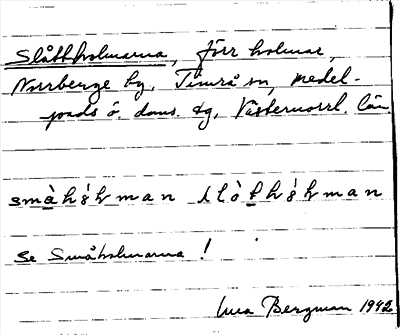 Slåttholmarna, förr holmar,
Norrberge by, Timrå sn, Medel-
pads ö. doms. tg, Västernorrl. län.
småhòḷman slòtthòḷman
se Småholmarna!
Bergman 1942